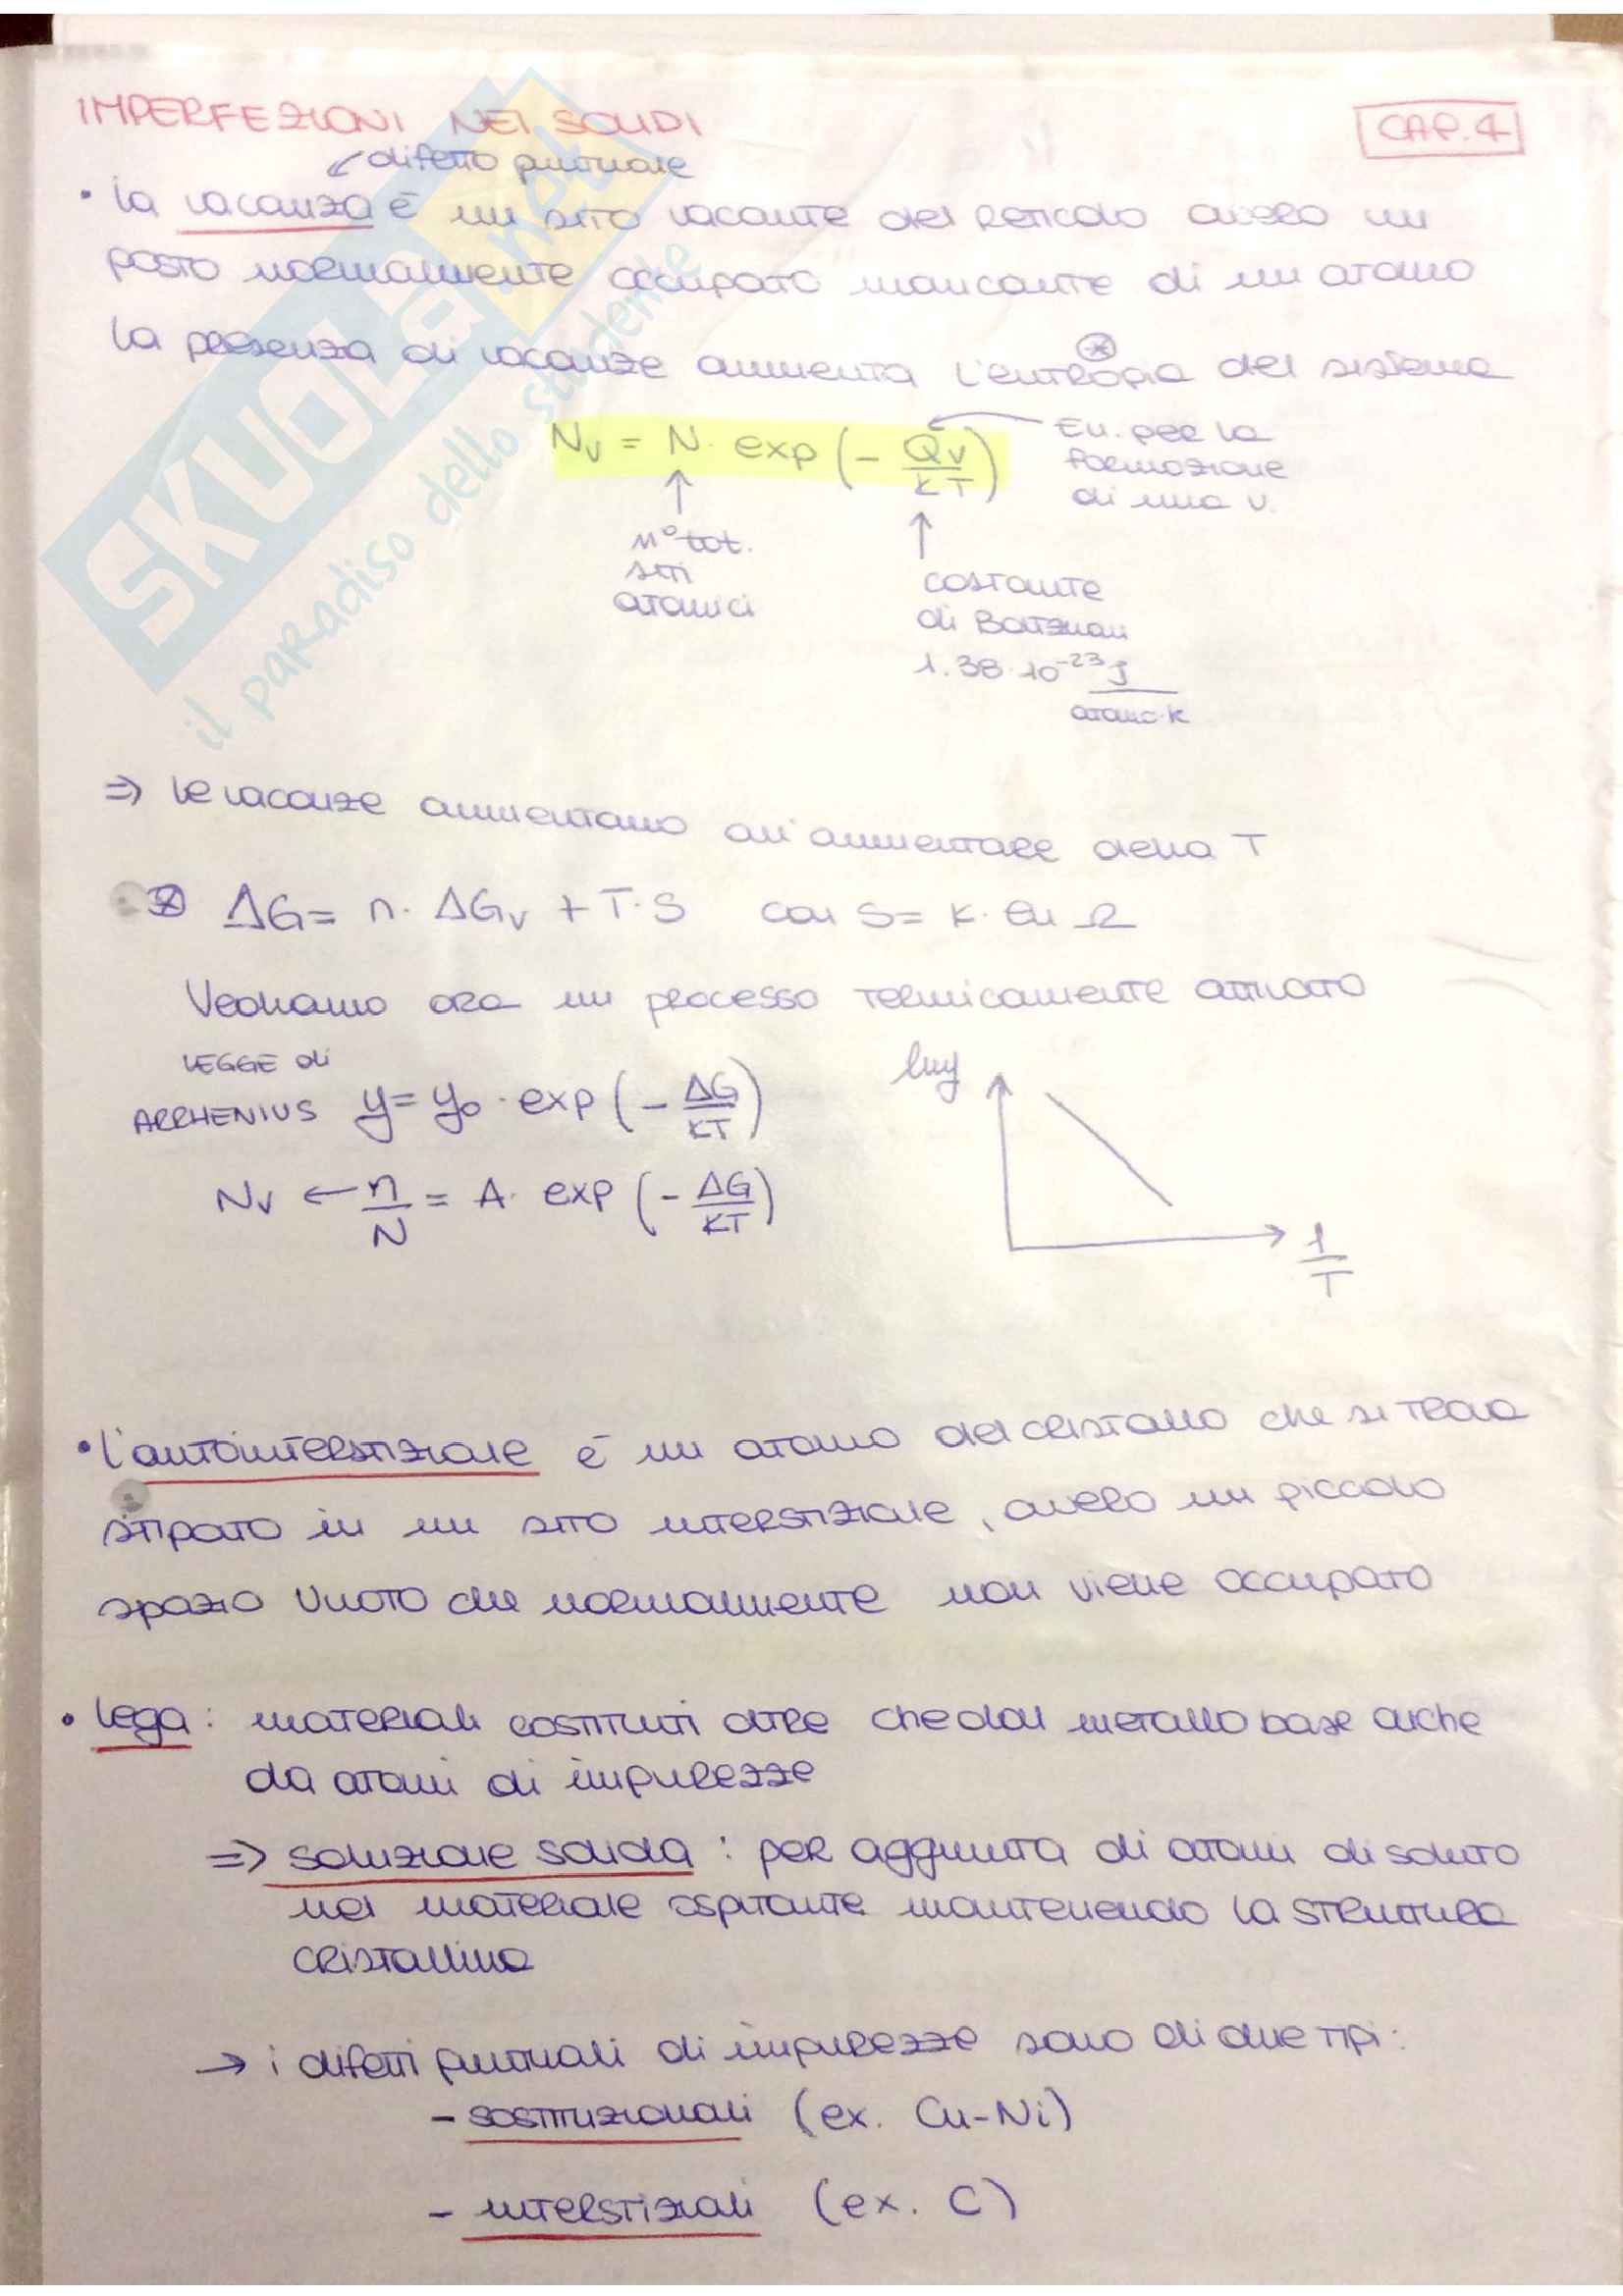 IMPERFEZIONI NEI SOLIDI
CAP. 4
difetto puntuale
• la vacanza è un sito vacante del reticolo ovvero un
posto normalmente occupato mancante di un atomo
la presenza di vacanze aumenta l'entropia del sistema
Nv = N · exp (- Qv/kT)
En. per la
formazione
di una v.
n° tot.
siti
atomici
costante
di Boltzman
1.38·10⁻²³ J/atomo·K
⇒ le vacanze aumentano all'aumentare della T
⊛ ΔG = n · ΔGv + T·S con S = k · ln Ω
Vediamo ora un processo termicamente attivato
LEGGE di
ARRHENIUS y = y₀ · exp (- ΔG/KT)
lny
Nv ← n/N = A · exp (- ΔG/KT)
1/T
• l'autointerstiziale è un atomo del cristallo che si trova
stipato in un sito interstiziale, ovvero un piccolo
spazio vuoto che normalmente non viene occupato
• lega: materiali costituiti oltre che dal metallo base anche
da atomi di impurezze
⇒ soluzione solida: per aggiunta di atomi di soluto
nel materiale ospitante mantenendo la struttura
cristallina
→ i difetti puntuali di impurezze sono di due tipi:
- sostituzionali (ex. Cu-Ni)
- interstiziali (ex. C)
SKUOLA.net
il paradiso dello studente